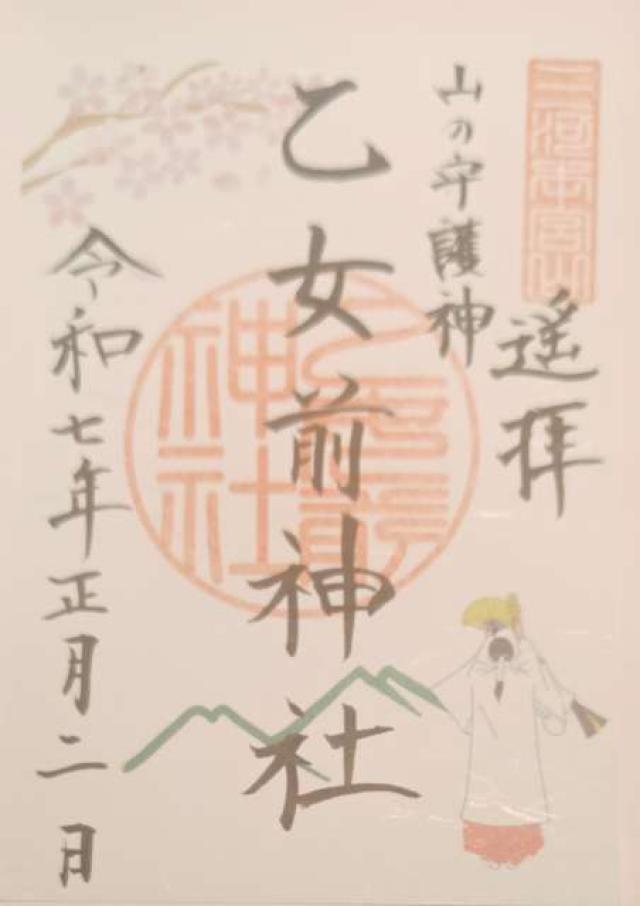 三河本宮山
遥拝
山の守護神
乙女前神社
乙女前神社
令和七年正月二日